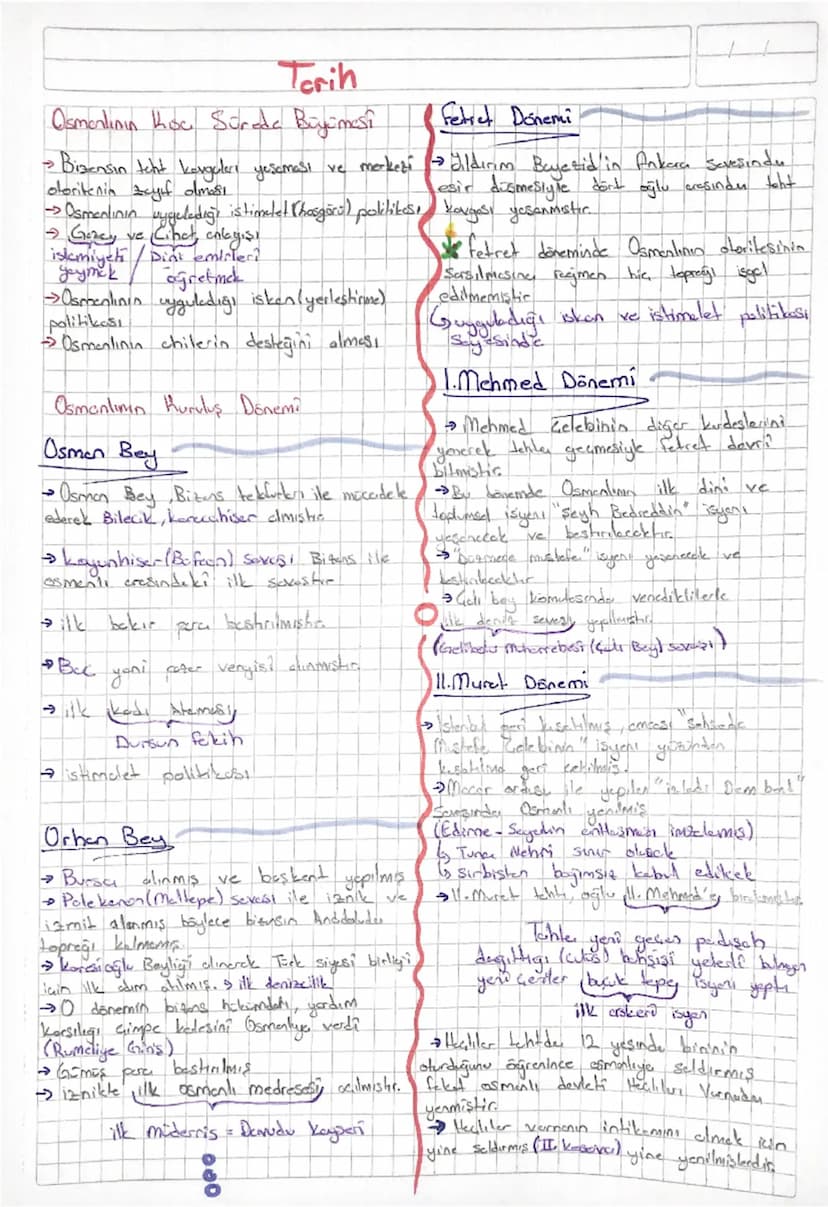 Tarih
Osmanlının Kısa Sürede Büyümesi
→ Bizansın taht kavgaları yaşaması ve merkezi
otoritenin zayıf olması
→ Osmanlının uyguladığı istimalet (hoşgörü) politikası
→ Gazay ve Cihat anlayışı
islamiyeti / Dini emirleri
yaymak / öğretmek
→ Osmanlının uyguladığı iskan (yerleştirme)
politikası
→ Osmanlının ahilerin desteğini alması
Osmanlının Kuruluş Dönemi
Osman Bey
→ Osman Bey, Bizans tekfurları ile mücadele
ederek Bilecik, karacahisar almıştır
→ koyunhisar (Bafeon) savaşı Bizans ile
osmanlı arasındaki ilk savaştır
→ ilk bakır para bastırılmıştır
→ Bac yani pazar vergisi alınmıştır
→ ilk kadı Ataması
Dursun fakih
→ istimalet politikası
Orhan Bey
→ Bursa alınmış ve başkent yapılmış
→ Palekanon (Maltepe) savaşı ile iznik ve
izmit alanmış böylece bizansın Anadoluda
toprağı kalmamış
→ karesioğlu Beyliği alınarak Türk siyasi birliği
için ilk adım atılmış. → ilk denizcilik
→ O dönemin bizans hükümdarı, yardım
karşılığı Çimpe kalesini Osmanlıya verdi
(Rumeliye Giriş)
→ Gümüş para bastırılmış
→ iznikte ilk osmanlı medresesi açılmıştır.
ilk müderris = Davudu Kayseri
Fetret Dönemi
→ Yıldırım Bayezid'in Ankara savaşında
esir düşmesiyle dört oğlu arasında taht
kavgası yaşanmıştır.
Fetret döneminde Osmanlının otoritesinin
sarsılmasına rağmen hiç toprağı işgal
edilmemiştir
↳ uyguladığı iskan ve istimalet politikası
sayesinde
I.Mehmed Dönemi
→ Mehmed Çelebinin diğer kardeşlerini
yenerek tahta geçmesiyle fetret devri
bitmiştir.
→ Bu dönemde Osmanlının ilk dini ve
toplumsal isyanı "şeyh Bedreddin" isyanı
yaşanacak ve bastırılacaktır.
→ "Düzmece mustafa" isyanı yaşanacak ve
bastırılacaktır
→ Çalı bey komutasında venediklilerle
ilk deniz savaşı yapılmıştır.
(Gelibolu Muharebesi (Çalı Bey) savaşı)
II.Murat Dönemi
→ İstanbul geri kuşatılmış, amcası "şehzade
Mustafa Çelebinin" isyanı yüzünden
kuşatma geri çekilmiş.
→ Macar ordusu ile yapılan "izladi Dern bent"
Savaşında Osmanlı yenilmiş
(Edirne - Segedin antlaşması imzalamış)
↳ Tuna Nehri sınır olacak
↳ sırbistan bağımsız kabul edilcek
→ II. Murat tahtı, oğlu II. Mehmed'e bırakmıştır
Tahta yeni geçen padişah
dağıttığı (culüs) bahşişi yeterli bulmayan
yeni çeriler buçuk tepe isyanı yaptı
ilk askeri isyan
→ Haçlılar tahtda 12 yaşında birinin
oturduğunu öğrenince osmanlıya saldırmış
fakat osmanlı devleti Haçlıları Varnada
yenmiştir.
→ Haçlılar varnanın intikamını almak için
yine saldırmış (II. Kosova) yine yenilmişlerdir